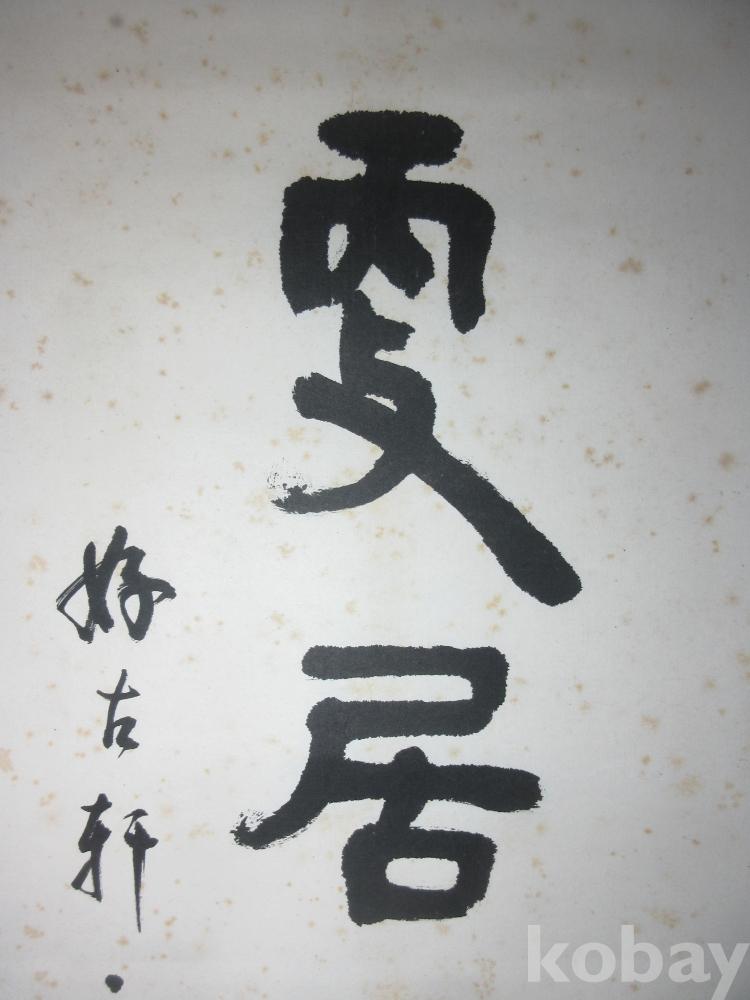 更居
好古軒
kobay